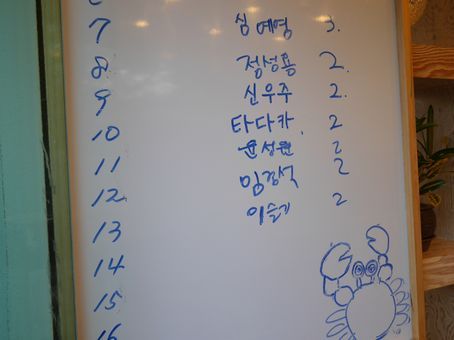 7 심예영 3.
8 정성용 2.
9 신우주 2.
10 타다카 2
11 윤성원 2
12 임경석 2
13 이슬기 2
14
15
16